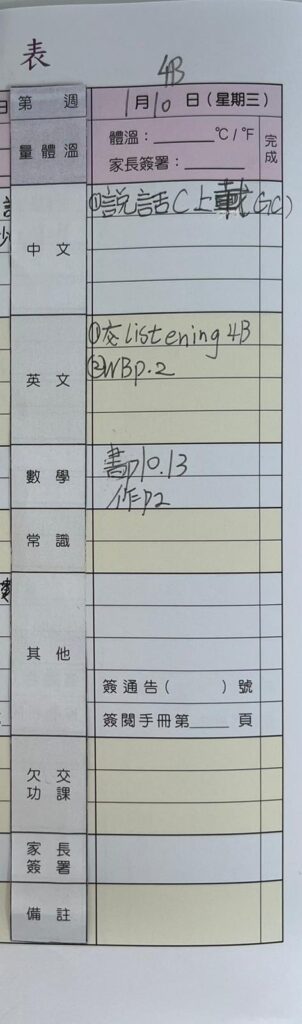 表
4B
第 週
1月10日(星期三)
量體溫
體溫:______℃/℉
家長簽署:______
完成
中文
①說話(上載GC)
英文
①交listening 4B
②WBp.2
數學
書p10.13
作p2
常識
其他
簽通告( )號
簽閱手冊第____頁
欠交功課
家長簽署
備註